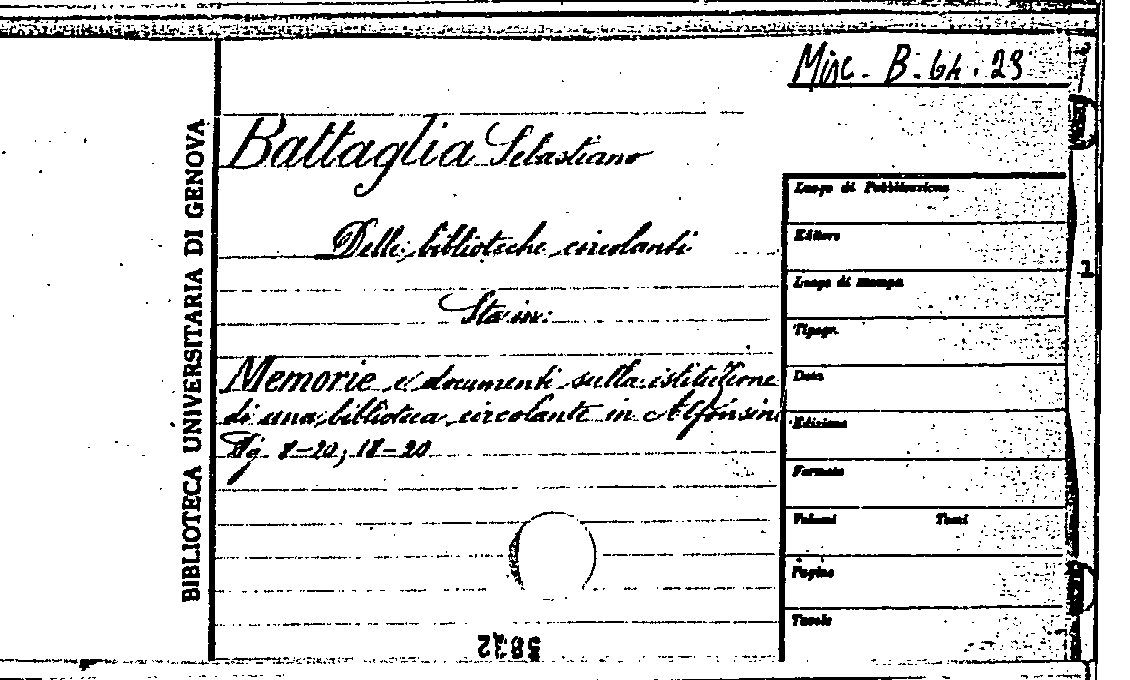 Misc. B. 64. 23
BIBLIOTECA UNIVERSITARIA DI GENOVA
Battaglia Sebastiano
Delle biblioteche circolanti
Sta in:
Memorie e documenti sulla istituzione
di una biblioteca circolante in Alfonsine
Pg. 8-20; 18-20
Luogo di Pubblicazione
Editore
Luogo di stampa
Tipogr.
Data
Edizione
Formato
Volumi Tomi
Pagine
Tavole
1